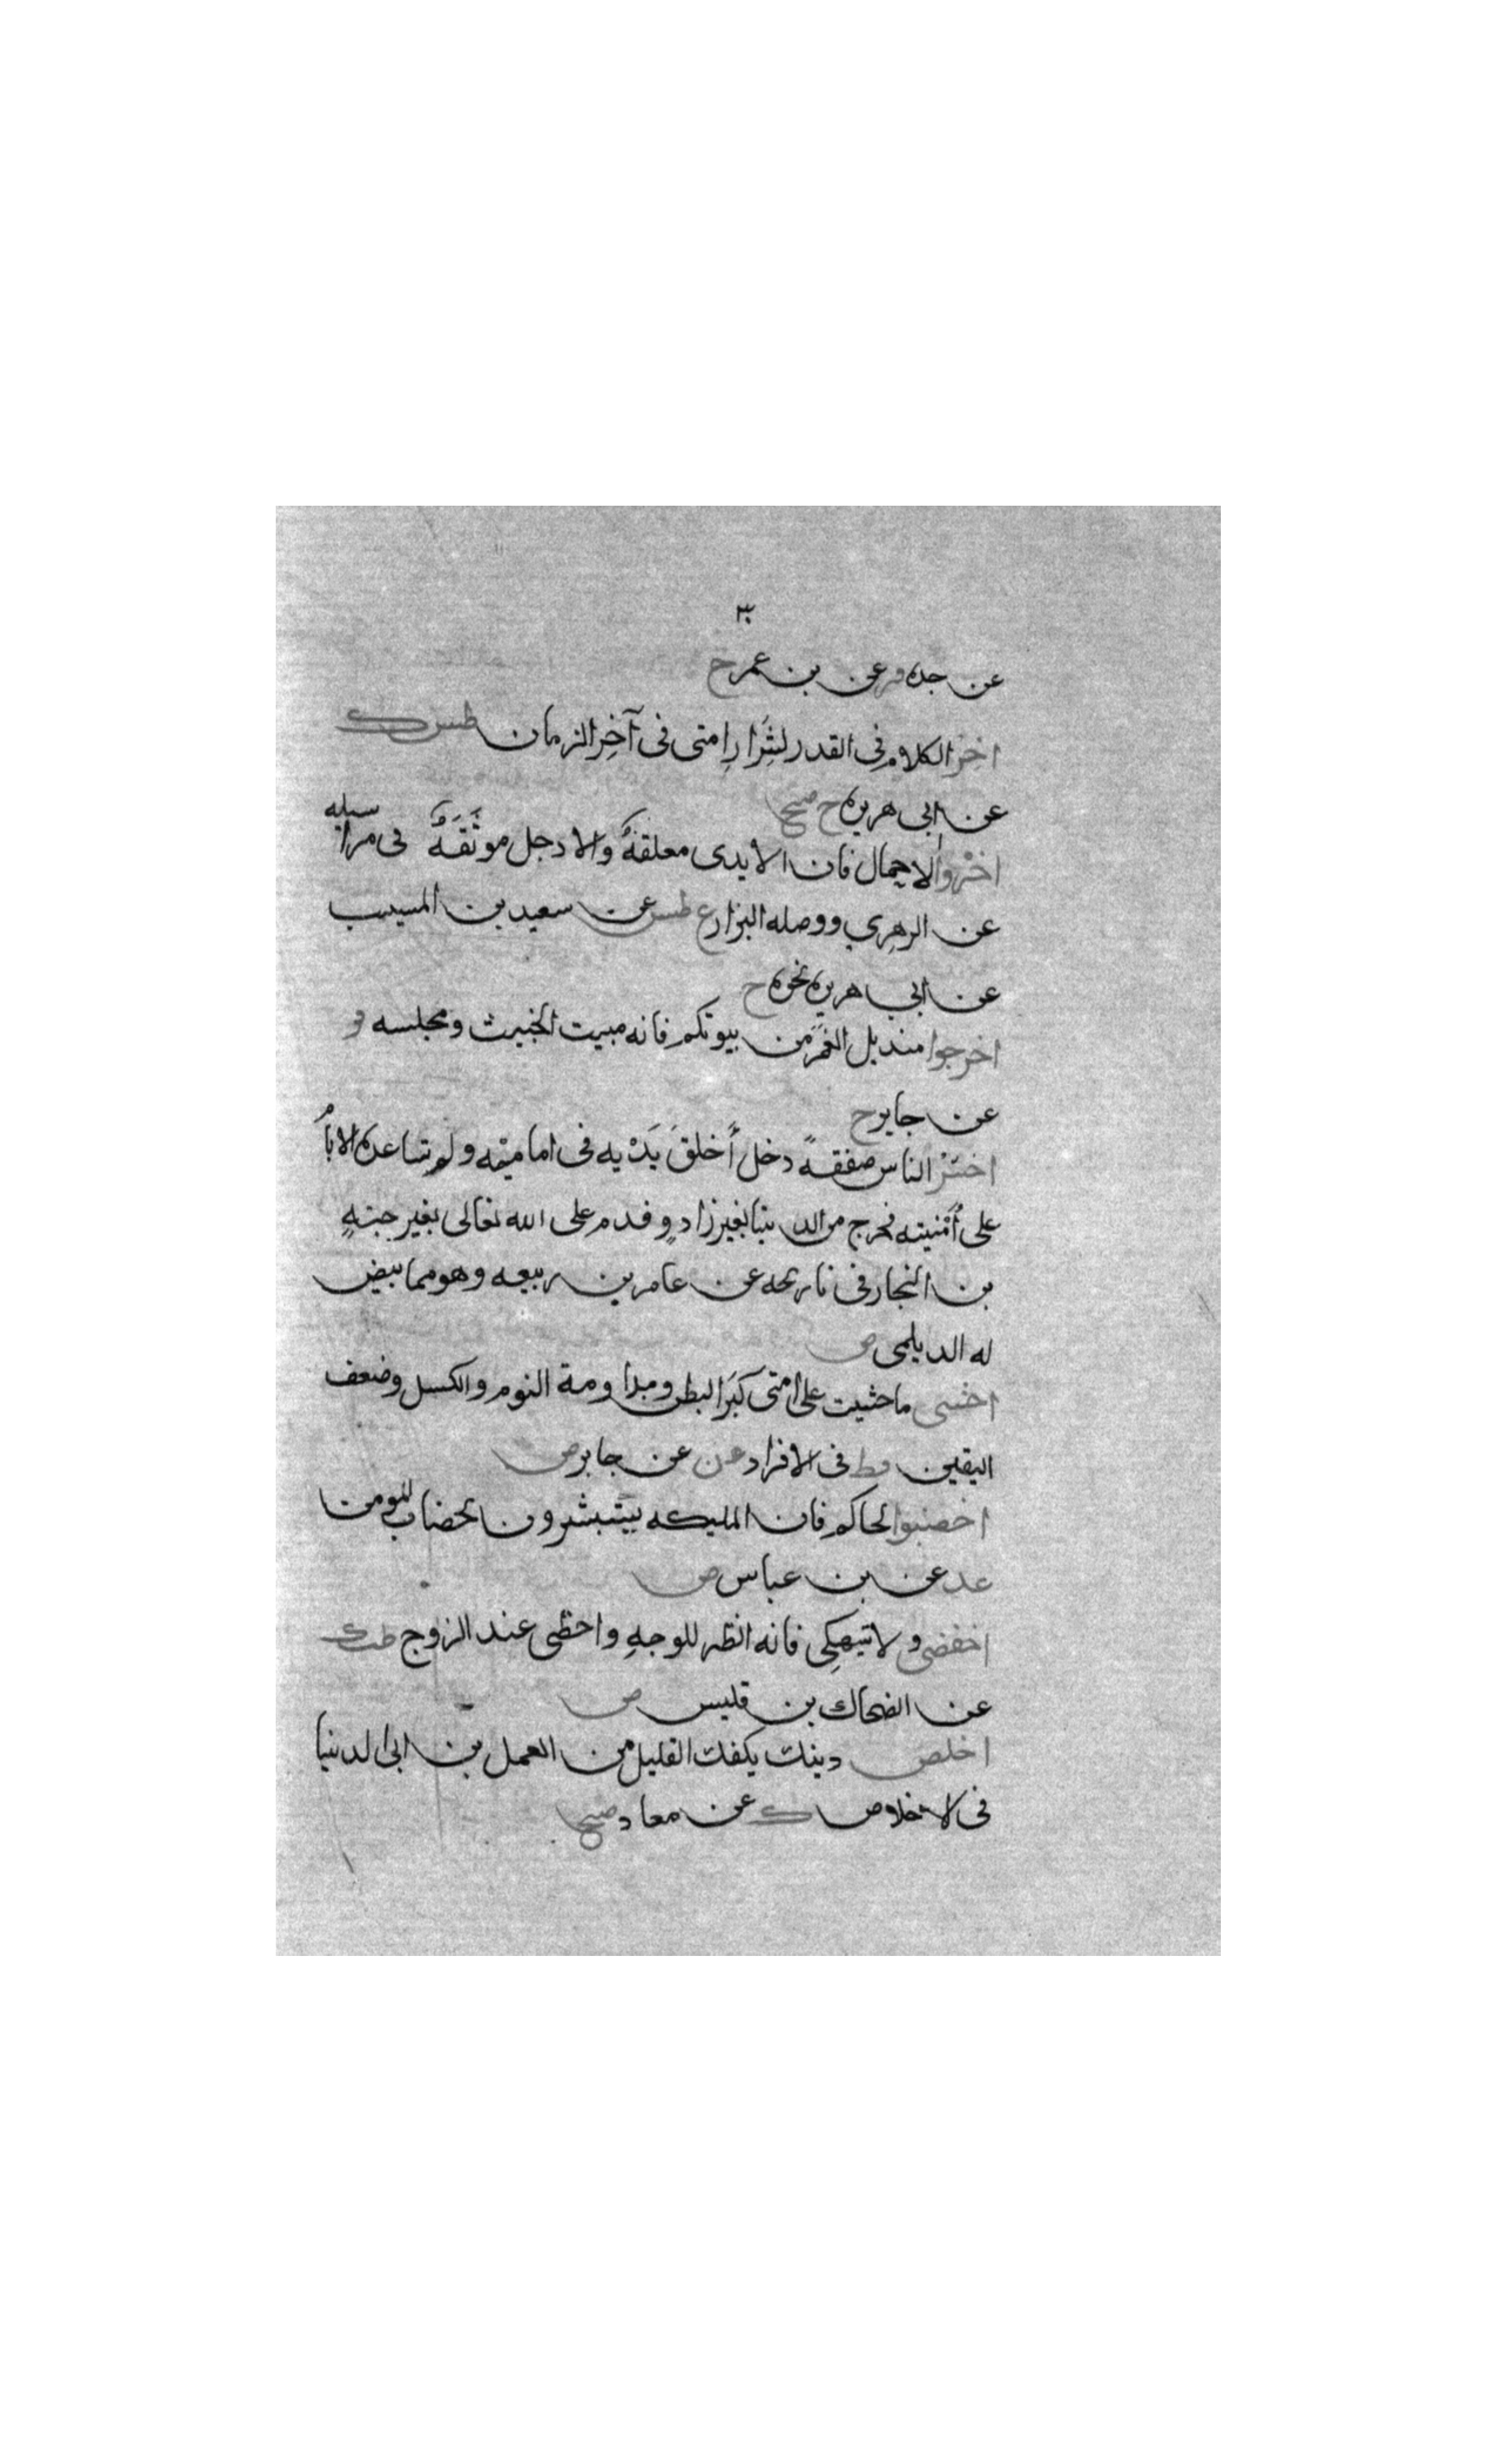 ٣
عن جده فر عن بن عمر ح
اخر الكلام في القدر لشرار امتى فى آخر الزمان طس ك
عن ابى هريره ح صح
اخروا الاحمال فان الايدى معلقة والارجل موثقة فى مراسيله
عن الزهري ووصله البزار ع طس عن سعيد بن المسيب
عن ابي هريره نحوه ح
اخرجوا منديل الغمر من بيوتكم فانه مبيت الخبيث ومجلسه فر
عن جابر ح
اخسر الناس صفقة رجل أخلق يديه فى اماميته ولم تساعده الايام
على أمنيته فخرج من الدنيا بغير زاد وقدم على الله تعالى بغير حجة
بن النجار فى تاريخه عن عامر بن ربيعه وهو مما بيض
له الديلمى ض
اخشى ما خشيت على امتى كبر البطن ومداومة النوم والكسل وضعف
اليقين قط فى الافراد عن عن جابر ض
اخضبوا لحاكم فان المليكه تستبشرون بخضاب المومن
عد عن بن عباس ض
اخفضى ولا تنهكى فانه انظر للوجه واحظى عند الزوج طب ك
عن الضحاك بن قليس ض
اخلص دينك يكفك القليل من العمل بن ابى الدنيا
فى الاخلاص ك عن معاد صح